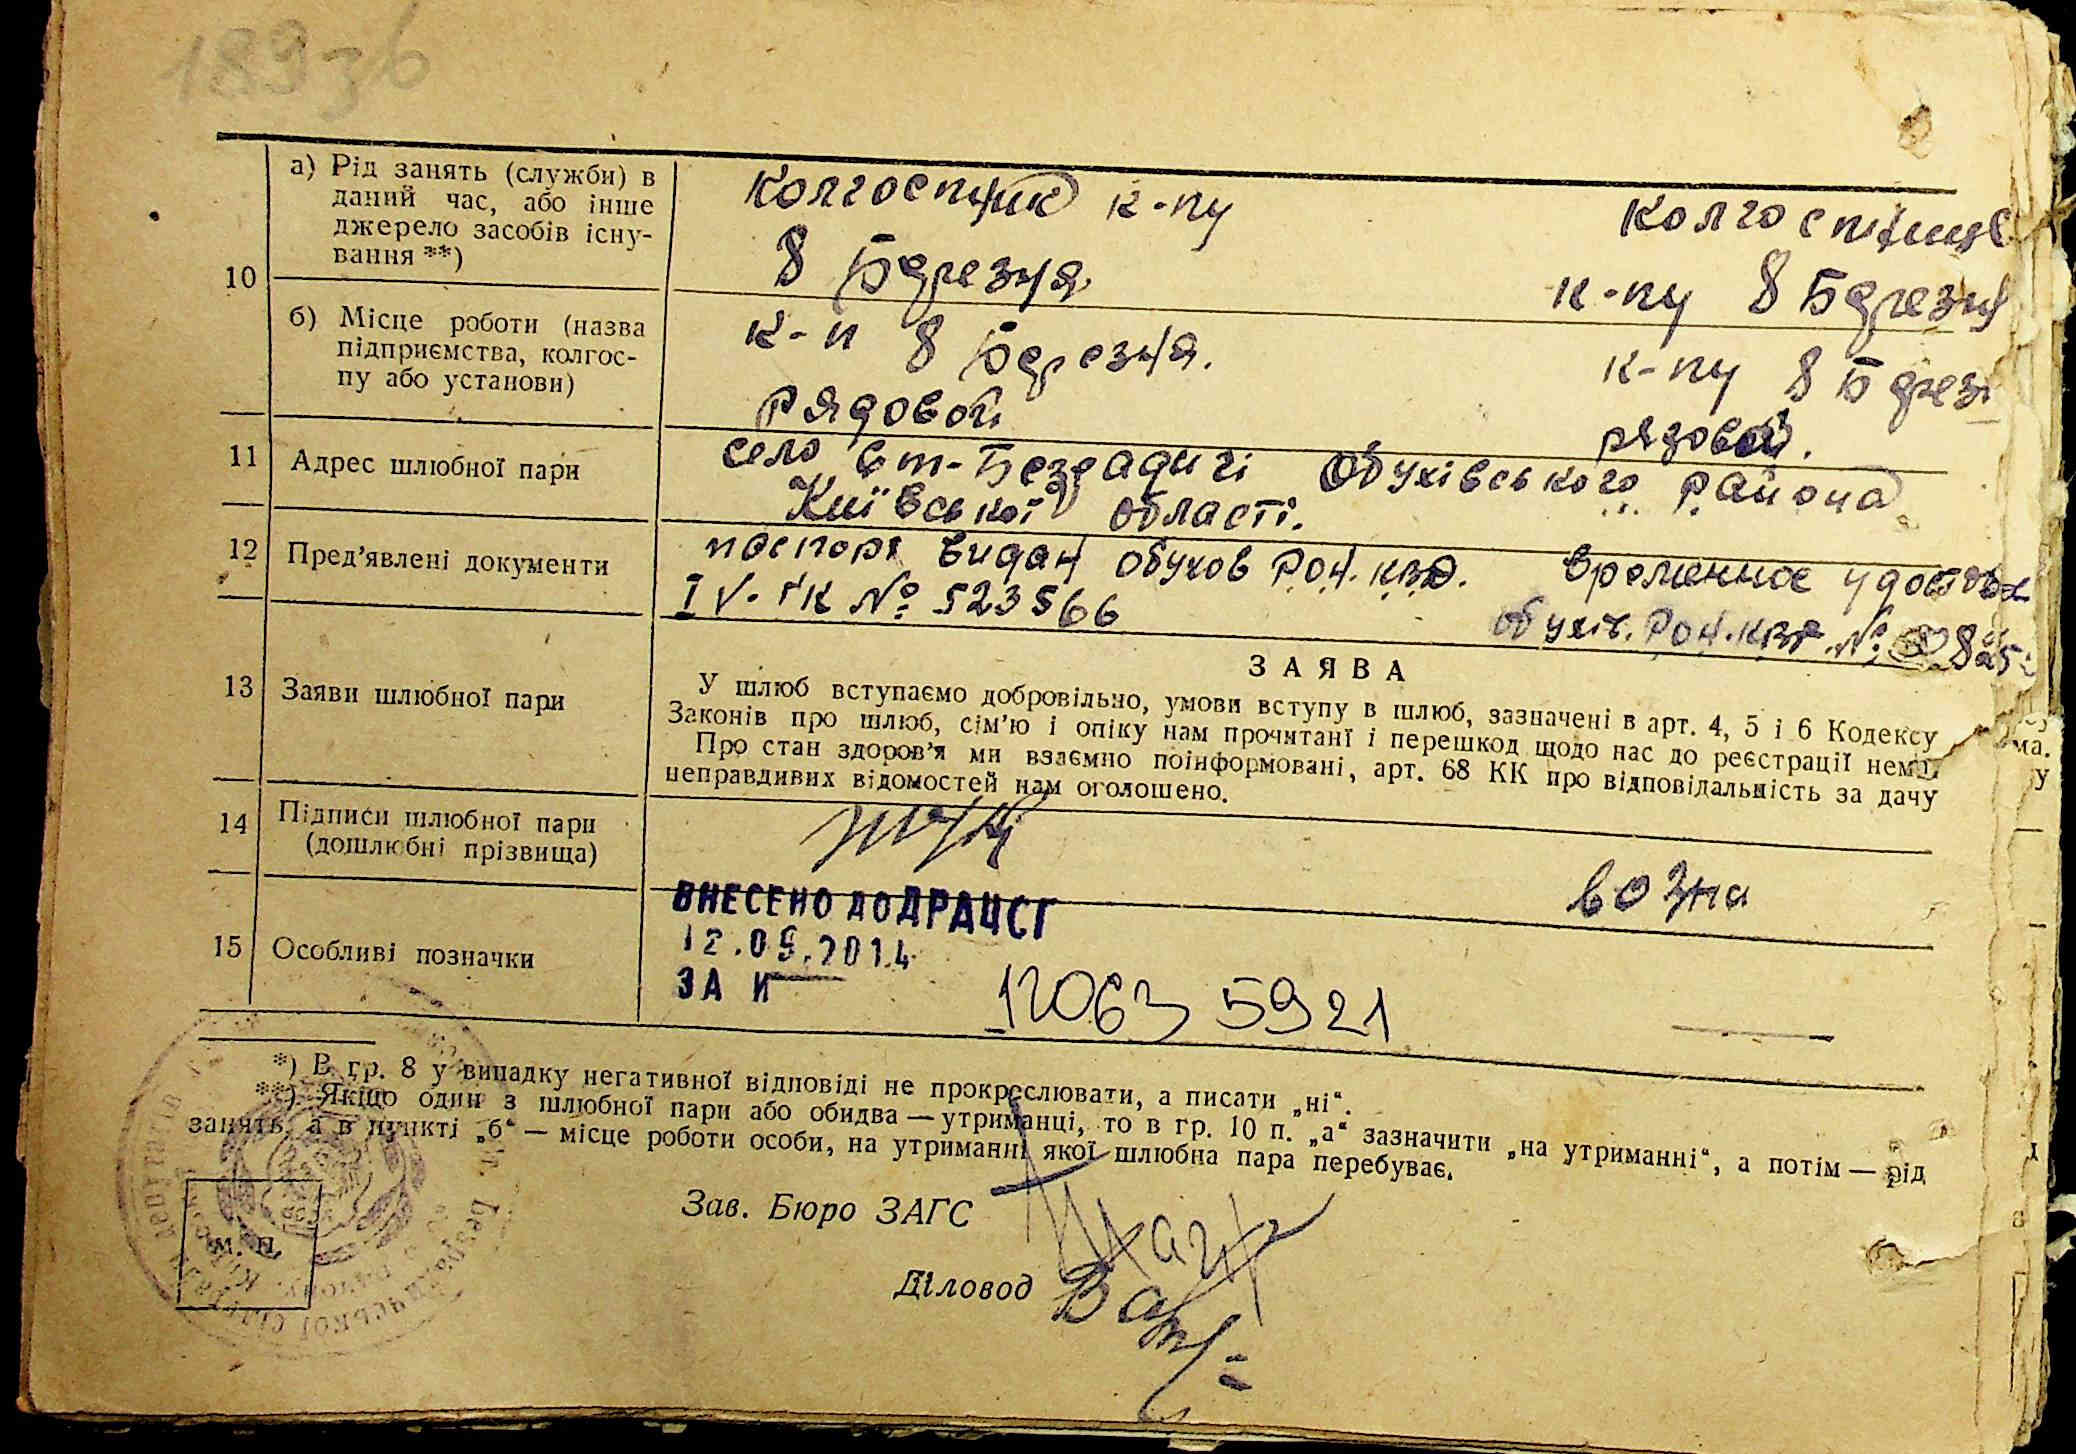 189зв
10
а) Рід занять (служби) в
даний час, або інше
джерело засобів існу-
вання **)
колгоспник к-пу
8 Березня.
колгоспниця
к-пу 8 Березня
б) Місце роботи (назва
підприємства, колгос-
пу або установи)
к-п 8 Березня.
рядовой
к-пу 8 Берез
рядовой.
11
Адрес шлюбної пари
село Вт-Безрадичі Обухівського района
Київської області.
12
Пред’явлені документи
паспорт видан Обухов Рон. КВД.
IV-ГК № 523566
временное удостов
обухів. Рон. КВД. №
13
Заяви шлюбної пари
ЗАЯВА
У шлюб вступаємо добровільно, умови вступу в шлюб, зазначені в арт. 4, 5 і 6 Кодексу
Законів про шлюб, сім’ю і опіку нам прочитані і перешкод щодо нас до реєстрації нема.
Про стан здоров’я ми взаємно поінформовані, арт. 68 КК про відповідальність за дачу
неправдивих відомостей нам оголошено.
14
Підписи шлюбної пари
(дошлюбні прізвища)
Возна
15
Особливі позначки
ВНЕСЕНО ДО ДРАЦСГ
12.09.2014
ЗА И
12063 5921
*) В гр. 8 у випадку негативної відповіді не прокреслювати, а писати „ні“.
**) Якщо один з шлюбної пари або обидва — утриманці, то в гр. 10 п. „а“ зазначити „на утриманні“, а потім — рід
занять, а в пункті „б“ — місце роботи особи, на утриманні якої шлюбна пара перебуває.
Зав. Бюро ЗАГС
Діловод
м. п.